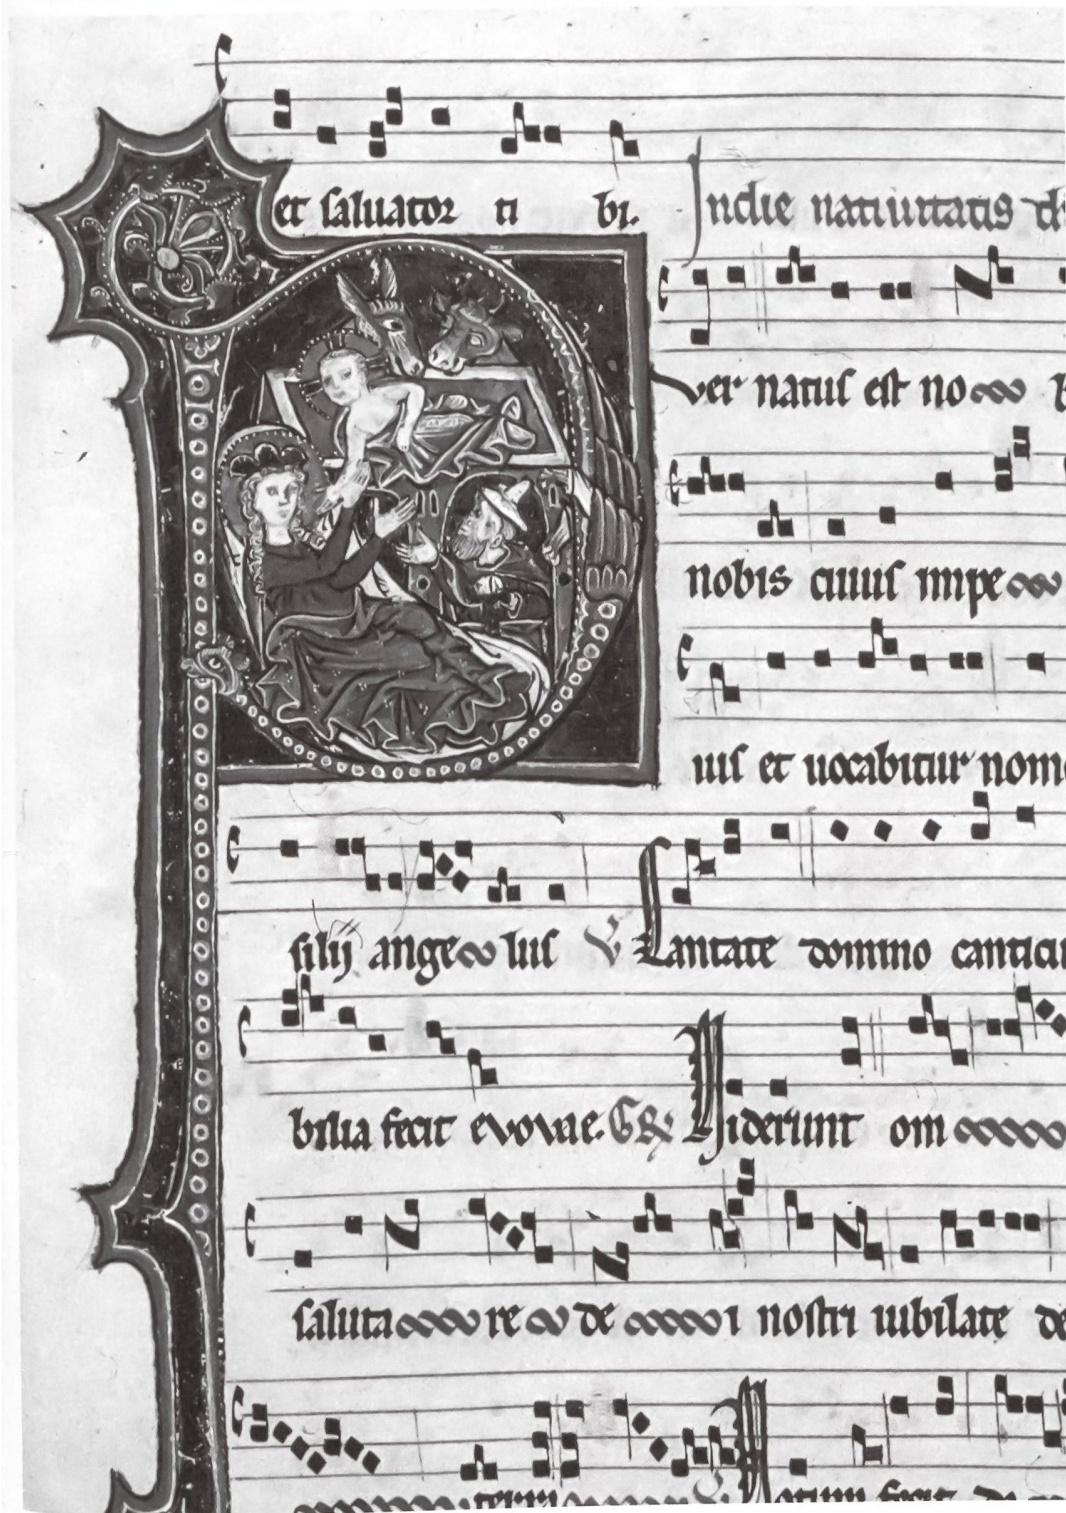 et saluator ti bi. In die natiuitatis
uer natus est no
nobis cuius impe
uis et uocabitur nom
silij ange lus ℣ Cantate domino canticu
bilia fecit evovae. Gr̄ Viderunt om
saluta re de i nostri iubilate de
terra ℣ Notum fecit do